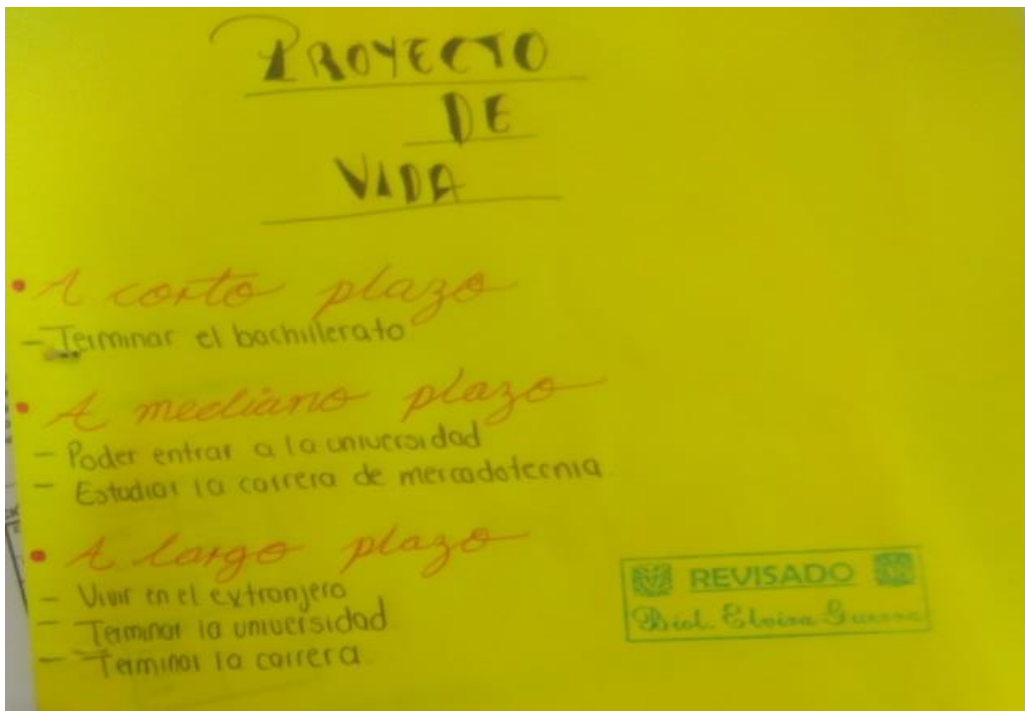 PROYECTO
DE
VIDA
• A corto plazo
- Terminar el bachillerato
• A mediano plazo
- Poder entrar a la universidad
- Estudiar la carrera de mercadotecnia.
• A largo plazo
- Vivir en el extranjero
- Terminar la universidad
- Terminar la carrera.
REVISADO
Biol. Elvira Guerra